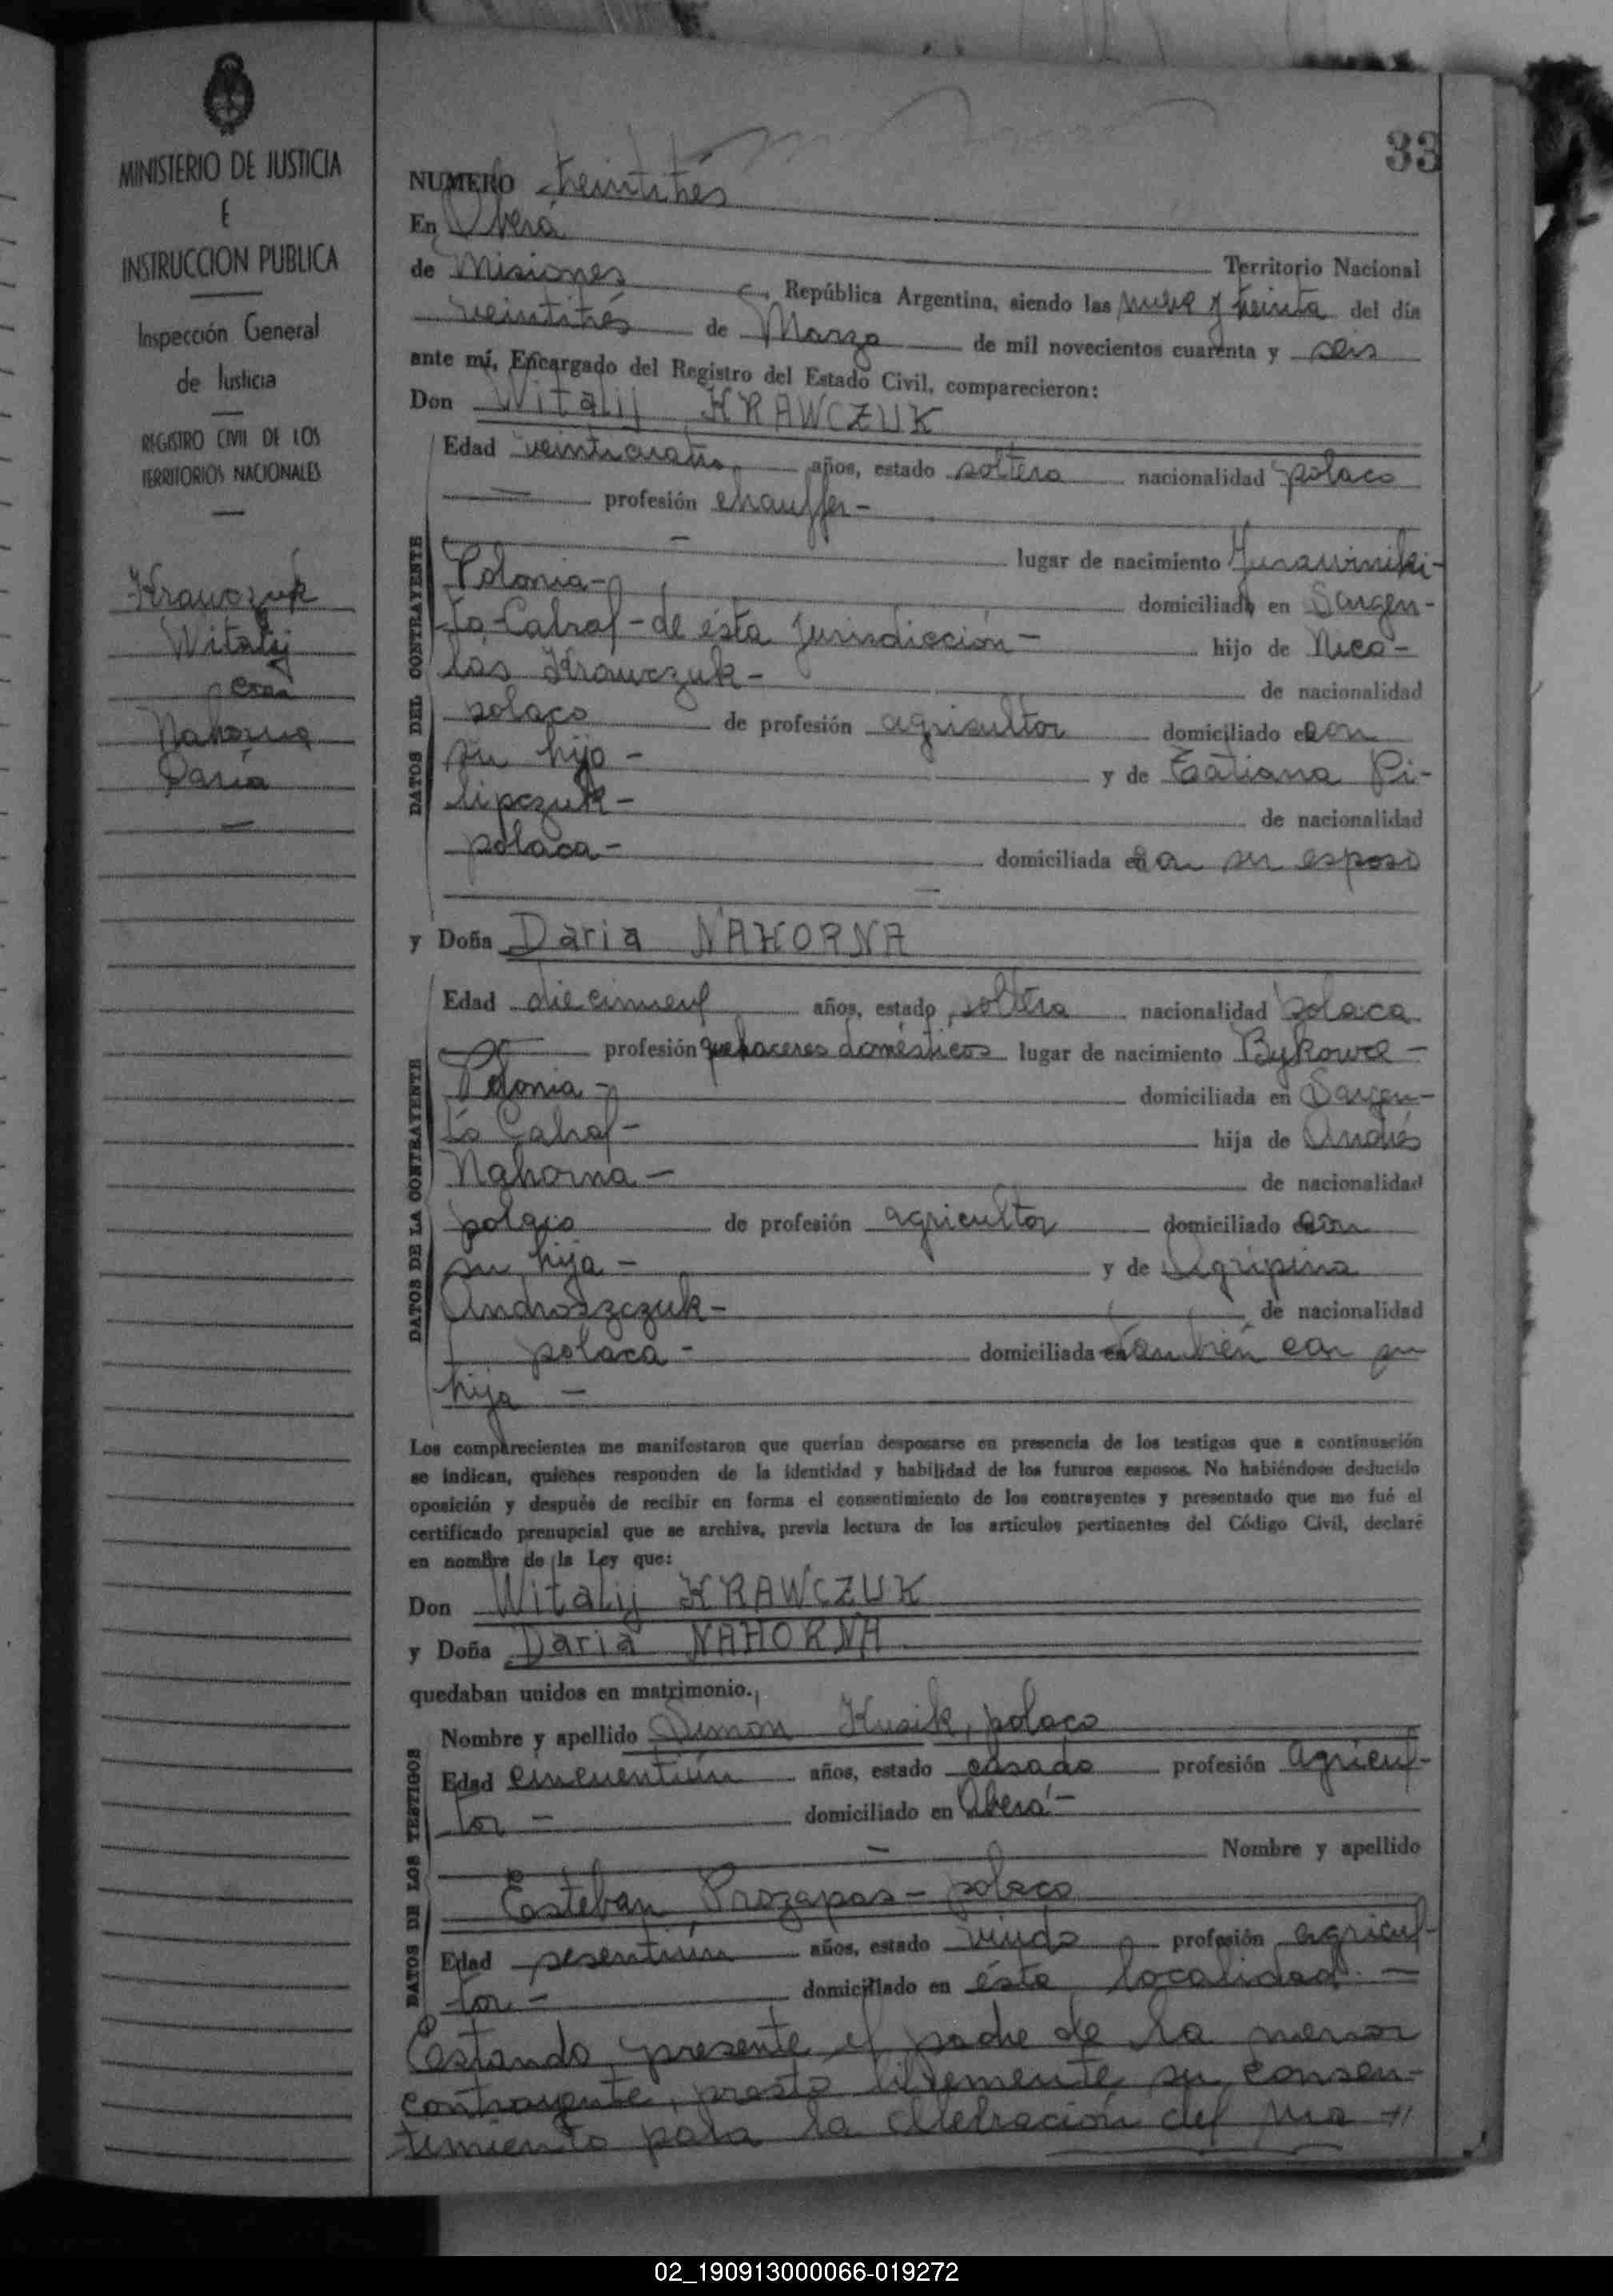 33
MINISTERIO DE JUSTICIA
E
INSTRUCCION PUBLICA
Inspección General
de Justicia
REGISTRO CIVIL DE LOS
TERRITORIOS NACIONALES
Krawczuk
Witalij
con
Nahorna
Daria
NUMERO treintitrés
En Oberá
Territorio Nacional
de Misiones, República Argentina, siendo las nueve y treinta del día
veintitrés de Marzo de mil novecientos cuarenta y seis
ante mí, Encargado del Registro del Estado Civil, comparecieron:
Don Witalij KRAWCZUK
DATOS DEL CONTRAYENTE
Edad veinticuatro años, estado soltero nacionalidad polaco
profesión chauffer-
lugar de nacimiento
Polonia- domiciliado en Sargen-
to-Cabral-de ésta jurisdicción- hijo de Nico-
lás Krawczuk- de nacionalidad
polaco de profesión agricultor domiciliado con
su hijo- y de Tatiana Pi-
lipczuk- de nacionalidad
polaca- domiciliada con su esposo
y Doña Daria NAHORNA
DATOS DE LA CONTRAYENTE
Edad diecinuev años, estado soltera nacionalidad polaca
profesión quehaceres domésticos lugar de nacimiento Bykowce-
Polonia- domiciliada en Sargen-
to Cabral- hija de Andrés
Nahorna- de nacionalidad
polaco de profesión agricultor domiciliado con
su hija- y de Agripina
Androszczuk- de nacionalidad
polaca- domiciliada en también con su
hija-
Los comparecientes me manifestaron que querían desposarse en presencia de los testigos que a continuación
se indican, quienes responden de la identidad y habilidad de los futuros esposos. No habiéndose deducido
oposición y después de recibir en forma el consentimiento de los contrayentes y presentado que me fué el
certificado prenupcial que se archiva, previa lectura de los artículos pertinentes del Código Civil, declaré
en nombre de la Ley que:
Don Witalij KRAWCZUK
y Doña Daria NAHORNA
quedaban unidos en matrimonio.
DATOS DE LOS TESTIGOS
Nombre y apellido Simon Kusik, polaco
Edad cincuentiún años, estado casado profesión agricul-
tor- domiciliado en Oberá-
Nombre y apellido
Esteban Prozapas-polaco
Edad sesentiún años, estado viudo profesión agricul-
tor- domiciliado en ésta localidad.-
Estando presente el padre de la menor
contrayente, prestó libremente su consen-
timiento para la celebración del ma
02_190913000066-019272